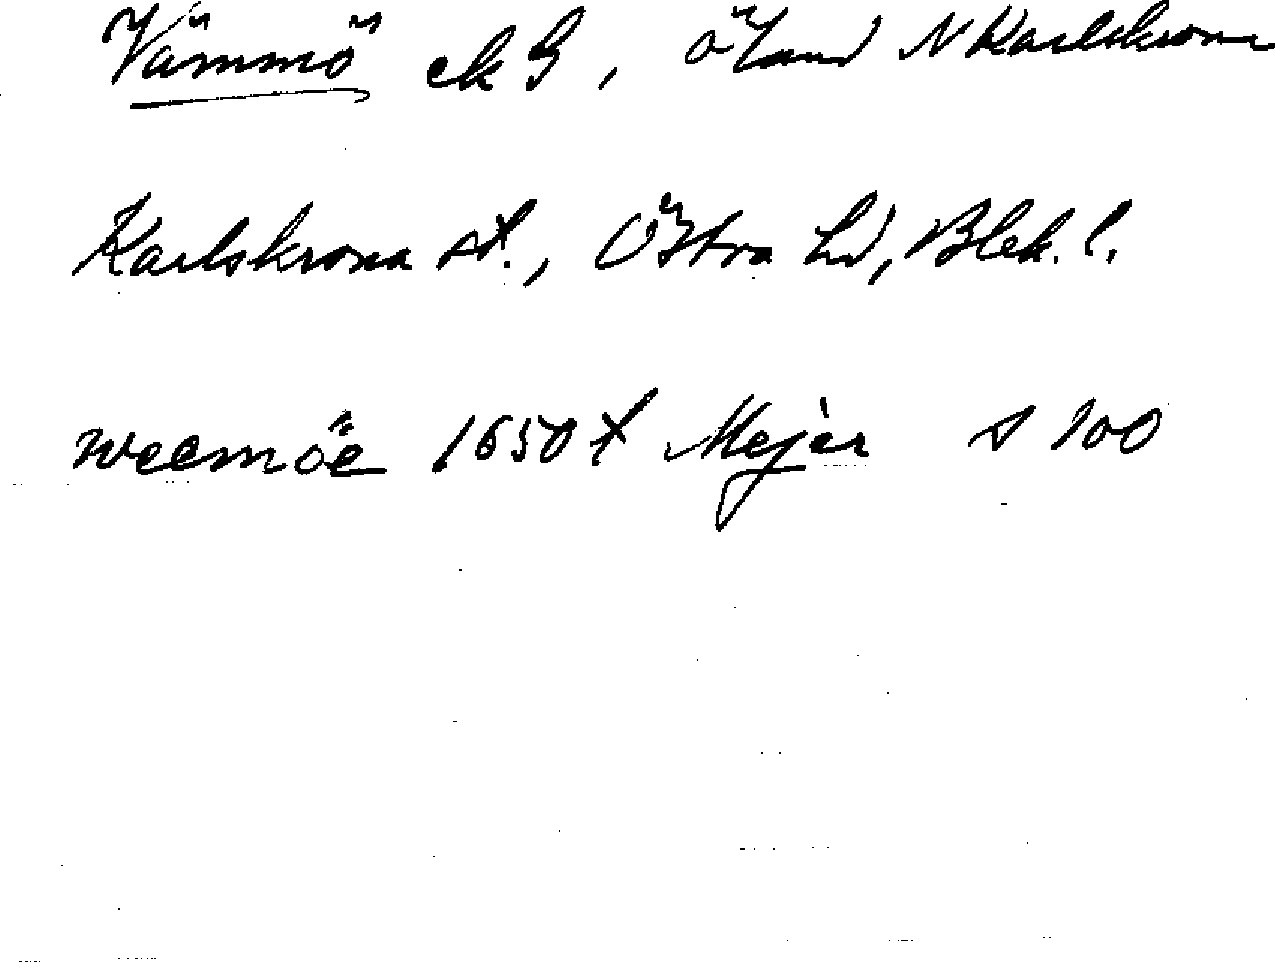 Vämmö ek G, öland N Karlskrona
Karlskrona st., Östra hd, Blek. l.
weemöe 1650 t Mejer s 100